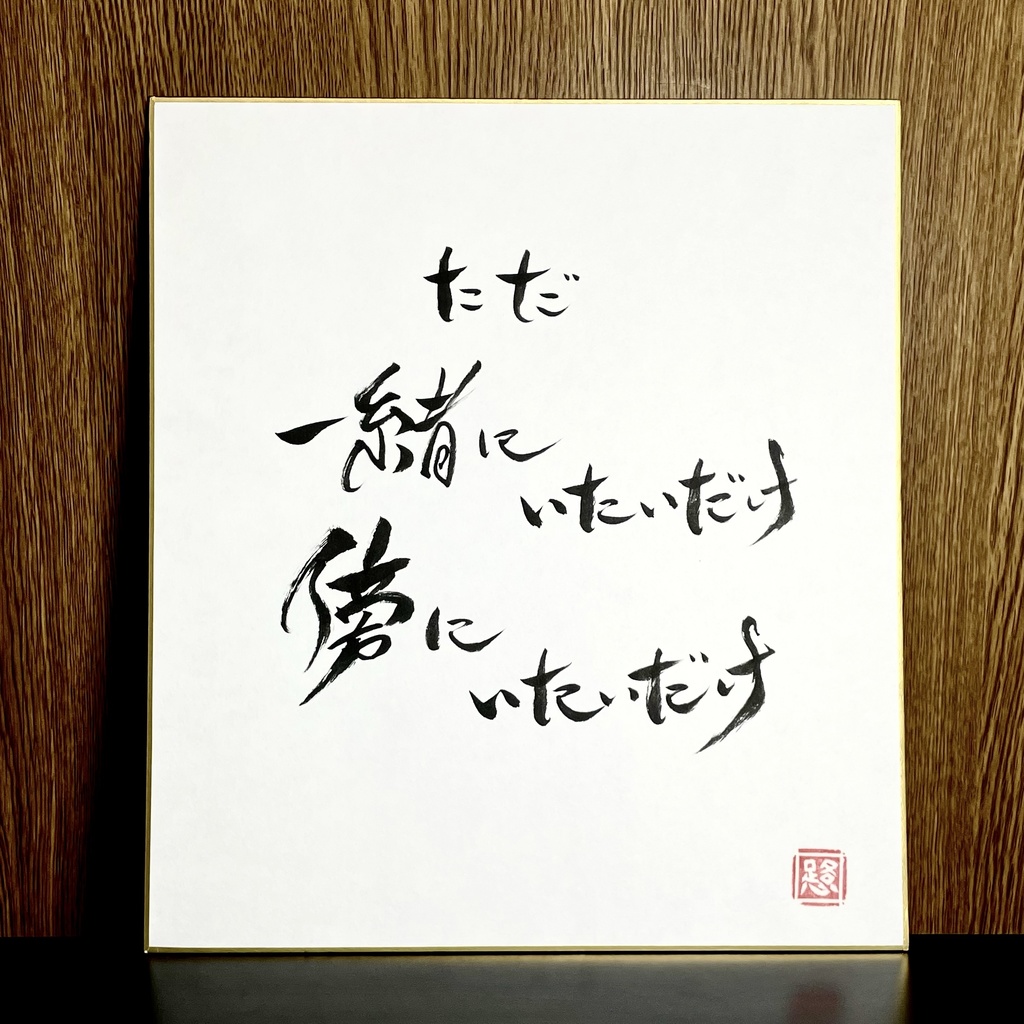 ただ
一緒に
いたいだけ
傍に
いたいだけ